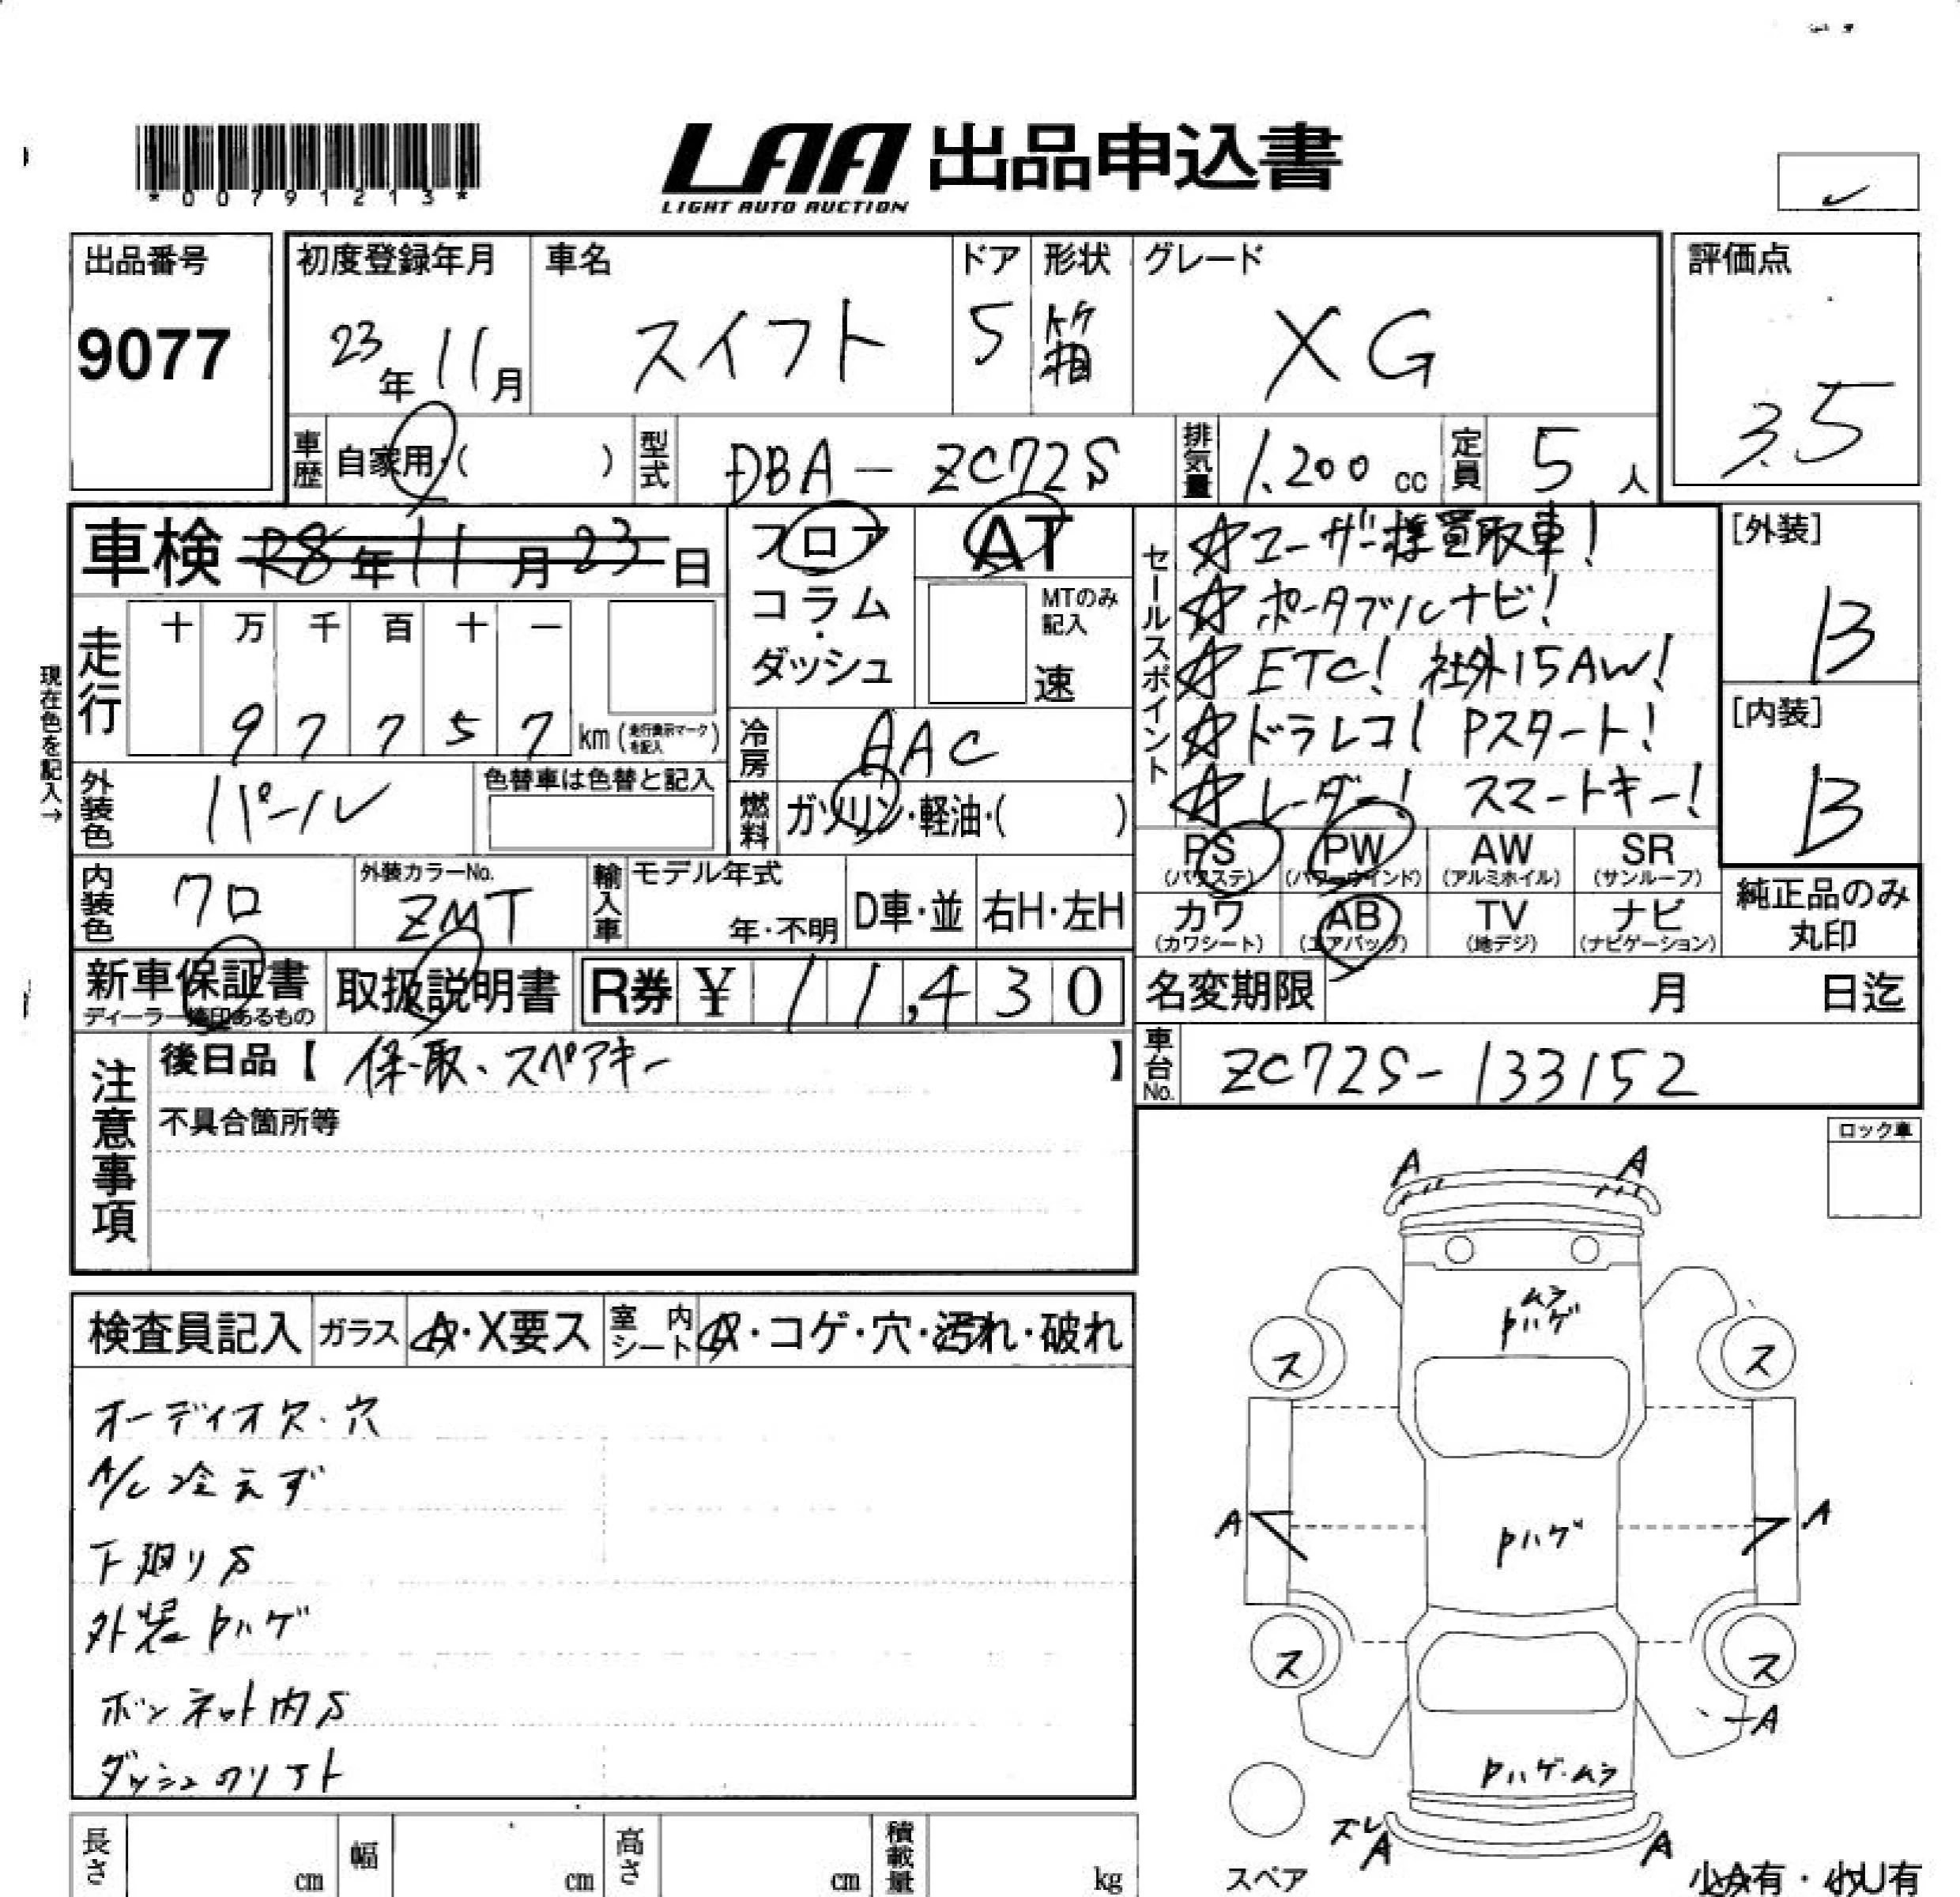 *00791213*
LAA 出品申込書
LIGHT AUTO AUCTION
出品番号
9077
初度登録年月
23年11月
車名
スイフト
ドア
5
形状
箱
グレード
XG
評価点
3.5
車歴
自家用・( )
型式
DBA-ZC72S
排気量
1.200cc
定員
5人
車検 R8年11月23日
フロア
コラム
・
ダッシュ
AT
MTのみ記入
速
セールスポイント
☆ユーザー様買取車!
☆ポータブルナビ!
☆ETC! 社外15AW!
☆ドラレコ! Pスタート!
☆レーダー! スマートキー!
[外装]
B
[内装]
B
現在色を記入→
走行
十 万 千 百 十 一
97757
km(走行表示マークを記入)
冷房
AAC
外装色
パール
色替車は色替と記入
燃料
ガソリン・軽油・( )
PS
(パワステ)
PW
(パワーウインド)
AW
(アルミホイル)
SR
(サンルーフ)
カワ
(カワシート)
AB
(エアバッグ)
TV
(地デジ)
ナビ
(ナビゲーション)
純正品のみ
丸印
内装色
クロ
外装カラーNo.
ZMT
輸入車
モデル年式
年・不明
D車・並
右H・左H
新車保証書
ディーラー捺印あるもの
取扱説明書
R券 ¥ 11,430
名変期限
月 日迄
車台No.
ZC72S-133152
注意事項
後日品【 保・取、スペアキー 】
不具合箇所等
ロック車
検査員記入
ガラス
A・X要ス
室内シート
A・コゲ・穴・汚れ・破れ
オーディオ欠・穴
A/C冷えず
下廻りS
外装Pハゲ
ボンネット内S
ダッシュのリアト
A A
ムラ
Pハゲ
ス ス
A A
Pハゲ
ス ス
A
Pハゲ・ムラ
ズレ
A A
スペア
小A有・小U有
長さ
cm
幅
cm
高さ
cm
積載量
kg